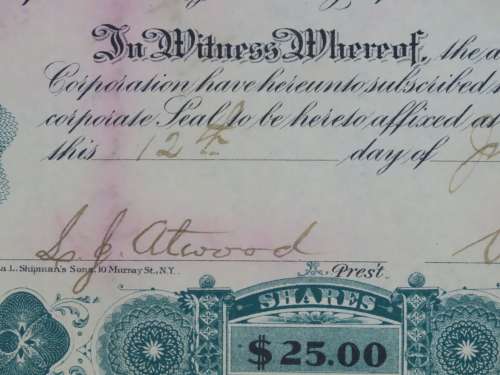 In Witness Whereof, the a
Corporation have hereunto subscribed
corporate Seal to be hereto affixed at
this 12th day of J
L. J. Atwood
a L. Shipman's Sons, 10 Murray St., N.Y. Pres't.
SHARES
$25.00